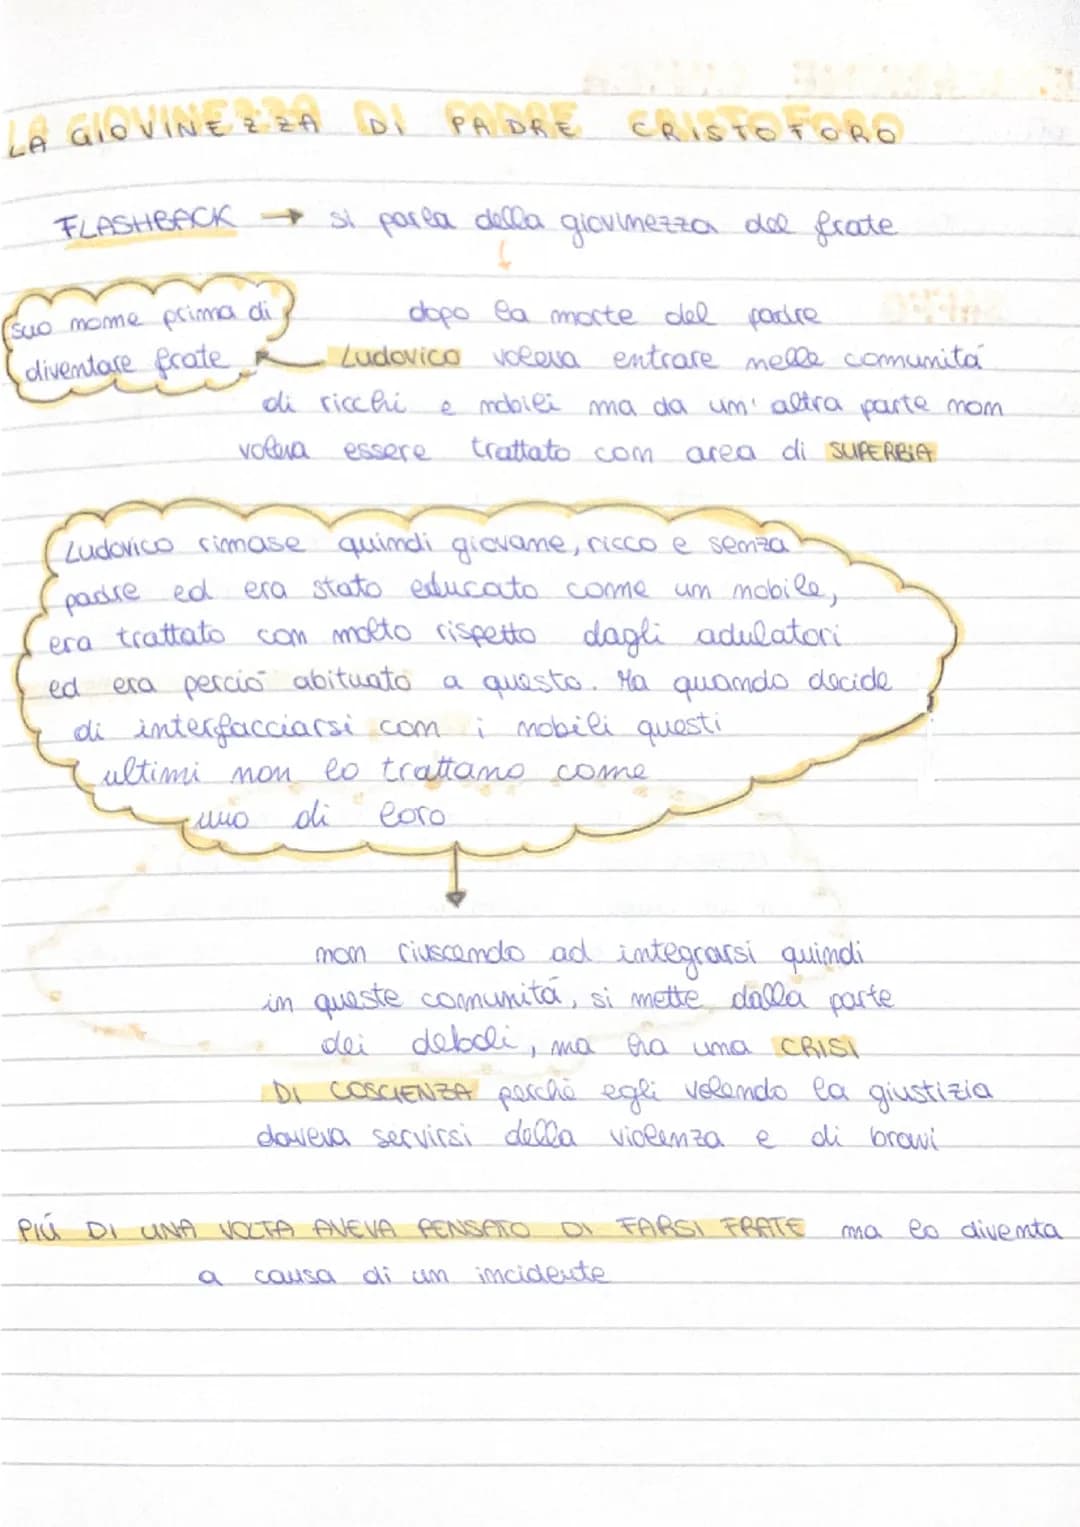 LA GIOVINEZZA DI PADRE CRISTOFORO
FLASHBACK → si parla della giovinezza del frate
↓
suo nome prima di
diventare frate
dopo la morte del padre
Ludovico voleva entrare nella comunitá
di ricchi e nobili ma da un' altra parte non
voleva essere trattato con area di SUPERBIA
Ludovico rimase quindi giovane, ricco e senza
padre ed era stato educato come un nobile,
era trattato con molto rispetto dagli adulatori
ed era perció abituato a questo. Ma quando decide
di interfacciarsi con i nobili questi
ultimi non lo trattano come
uno di loro
↓
non riuscendo ad integrarsi quindi
in queste comunitá, si mette dalla parte
dei deboli, ma ha una CRISI
DI COSCIENZA perché egli volendo la giustizia
doveva servirsi della violenza e di bravi
PIÚ DI UNA VOLTA AVEVA PENSATO DI FARSI FRATE ma lo diventa
a causa di un incidente